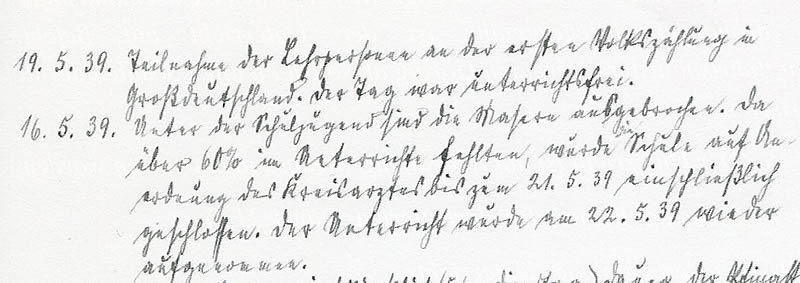 19. 5. 39. Teilnahme der Lehrpersonen an der ersten Volkszählung in
Großdeutschland. Der Tag war unterrichtsfrei.
16. 5. 39. Unter der Schuljugend sind die Masern ausgebrochen. Da
über 60% im Unterrichte fehlten, wurde die Schule auf An-
ordnung des Kreisarztes bis zum 21. 5. 39 einschließlich
geschlossen. Der Unterricht wurde am 22. 5. 39 wieder
aufgenommen.
der